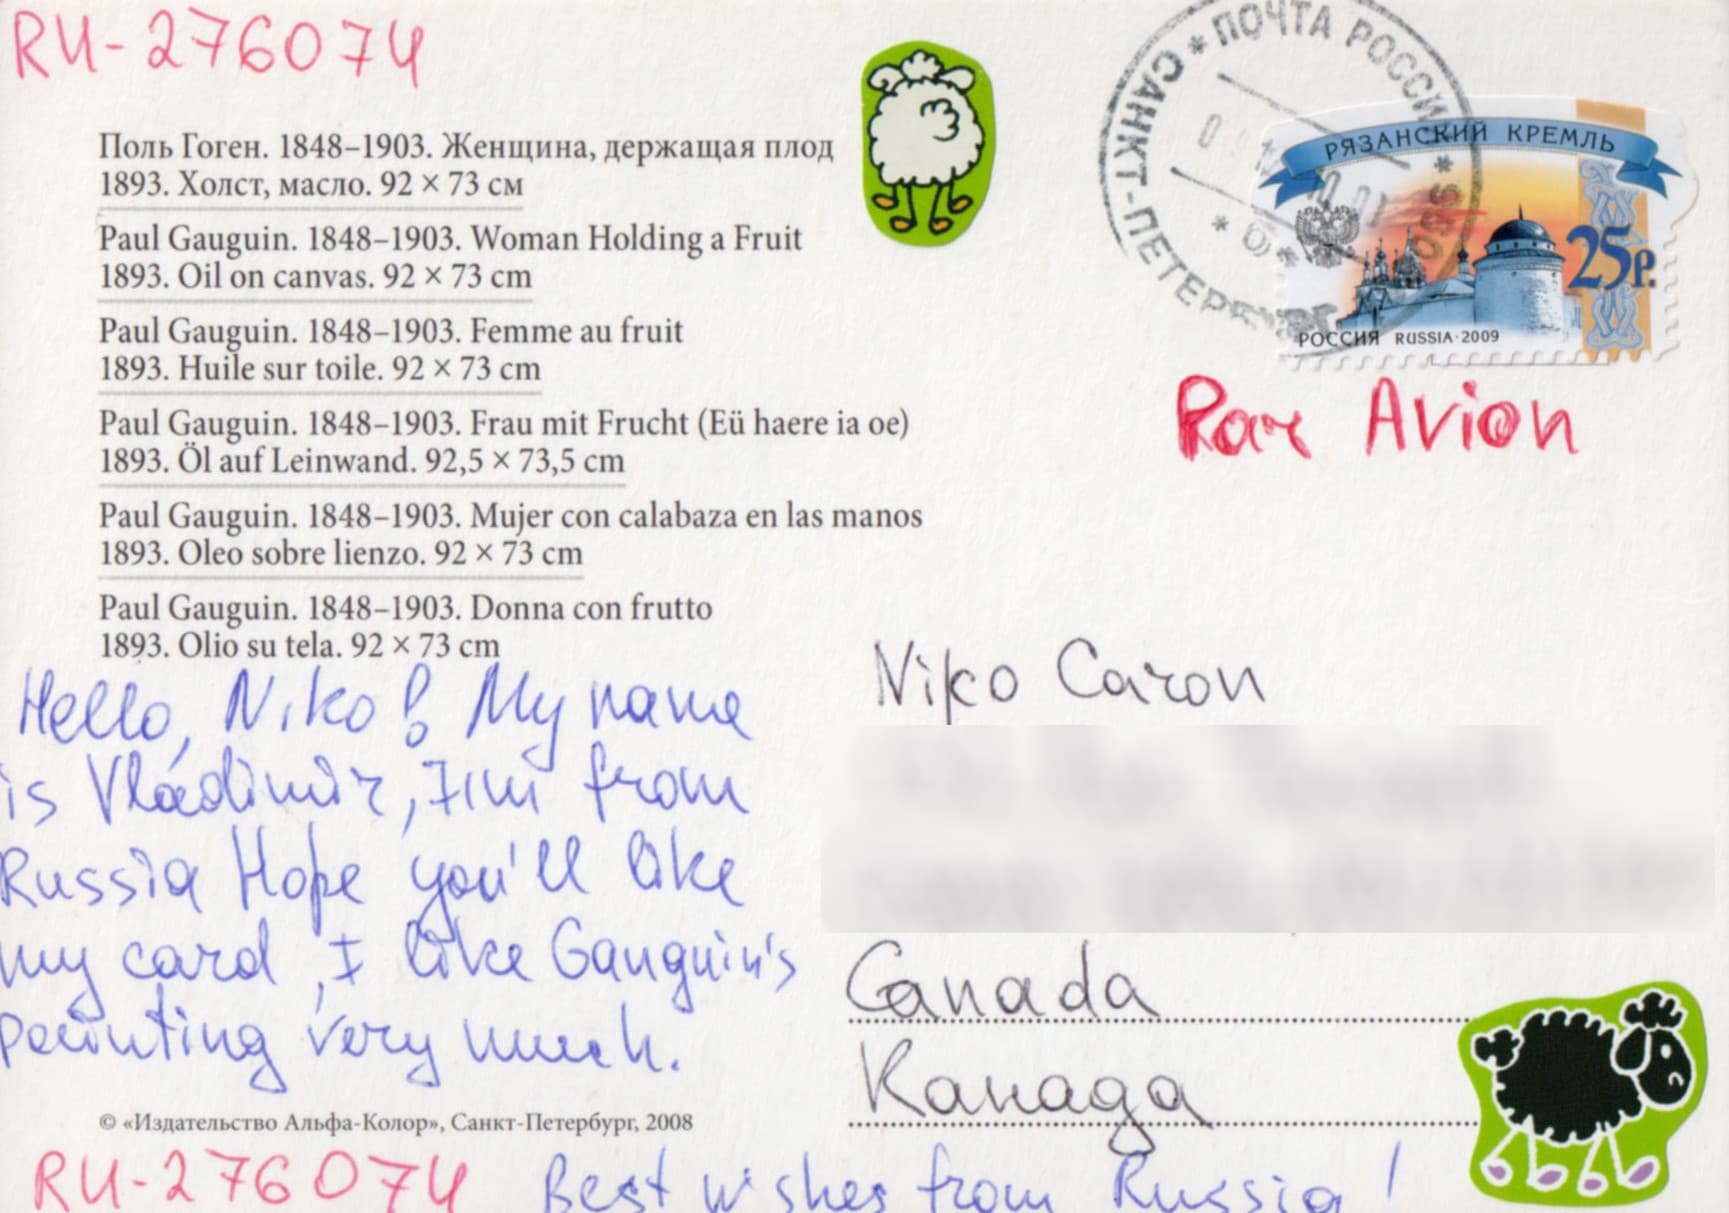 RU-276074
Поль Гоген. 1848–1903. Женщина, держащая плод
1893. Холст, масло. 92 × 73 см
Paul Gauguin. 1848–1903. Woman Holding a Fruit
1893. Oil on canvas. 92 × 73 cm
Paul Gauguin. 1848–1903. Femme au fruit
1893. Huile sur toile. 92 × 73 cm
Paul Gauguin. 1848–1903. Frau mit Frucht (Eü haere ia oe)
1893. Öl auf Leinwand. 92,5 × 73,5 cm
Paul Gauguin. 1848–1903. Mujer con calabaza en las manos
1893. Oleo sobre lienzo. 92 × 73 cm
Paul Gauguin. 1848–1903. Donna con frutto
1893. Olio su tela. 92 × 73 cm
Hello, Niko! My name
is Vladimir, I'm from
Russia Hope you'll like
my card, I like Gauguin's
painting very much.
© «Издательство Альфа-Колор», Санкт-Петербург, 2008
RU-276074
Best wishes from Russia!
ПОЧТА РОССИИ
САНКТ-ПЕТЕРБУРГ
РЯЗАНСКИЙ КРЕМЛЬ
25р.
РОССИЯ RUSSIA·2009
Par Avion
Niko Caron
Canada
Канада